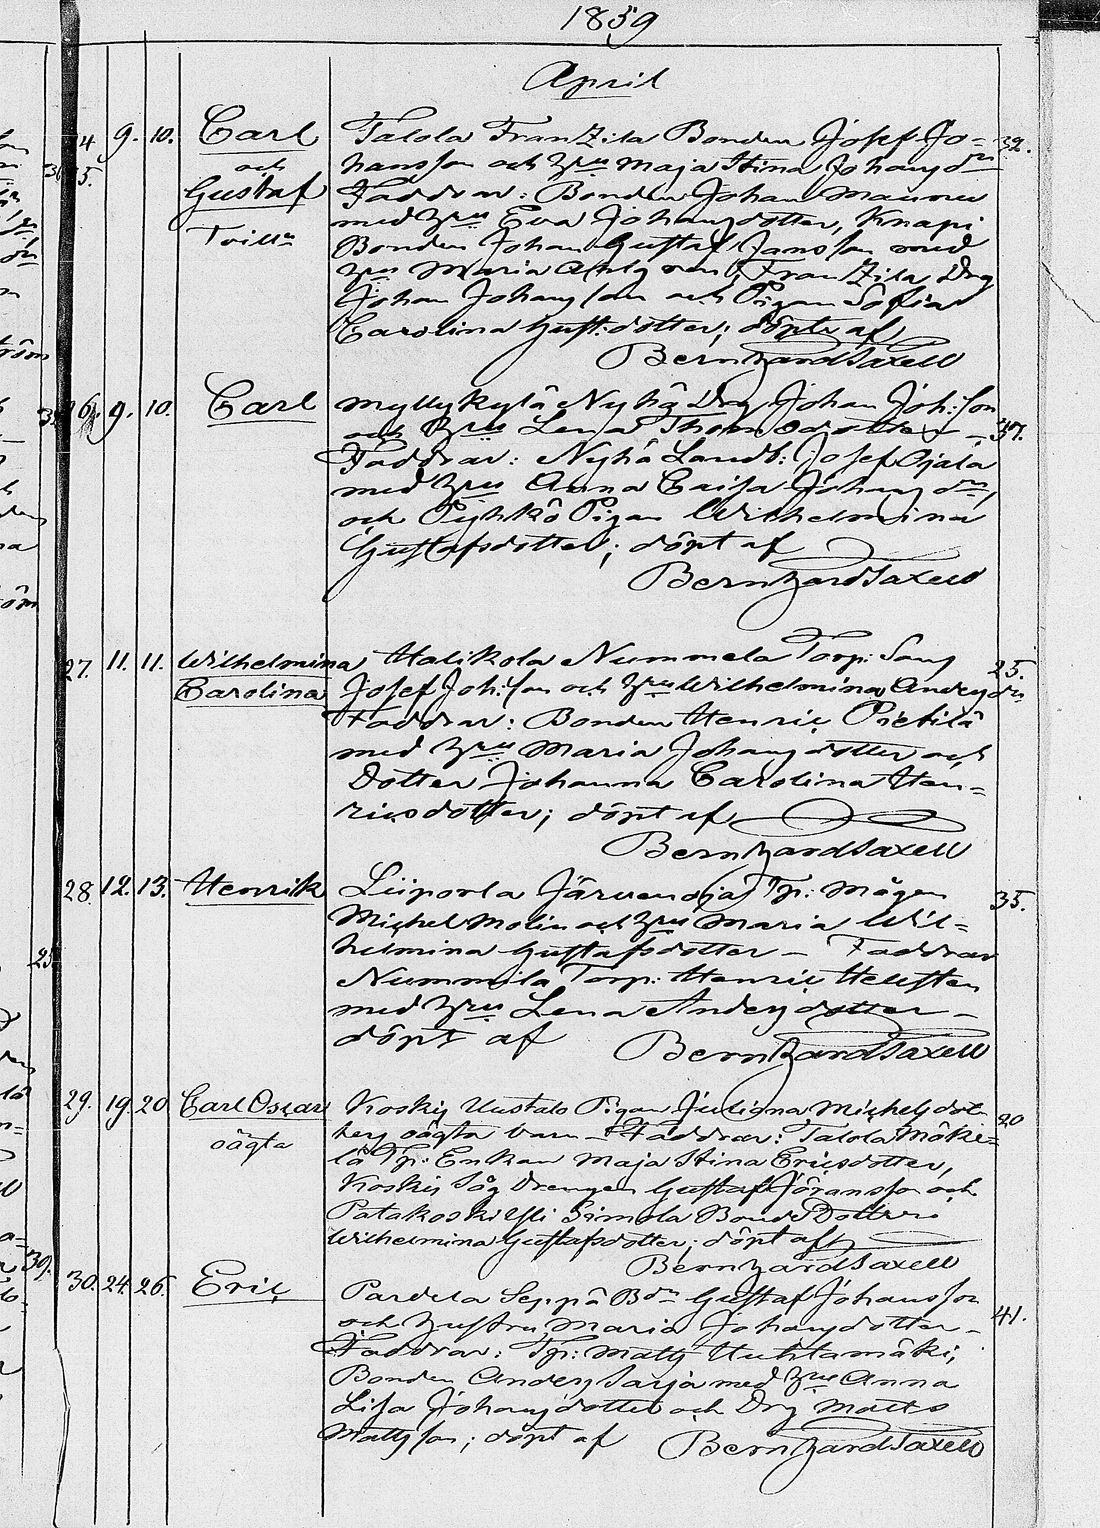 1859
April
24 9. 10. Carl Talola Franzila Bonden Josef Jo= 32.
25. och hansson och Hru Maja Stina Johansdr
Gustaf Faddrar: Bonden Johan Maunu
Tvill. med Hru Eva Johansdotter, Knapi
Bonden Johan Gustaf Jansson med
Hru Maria Franzila Drg
Johan Johansson och Pigan Sofia
Carolina Gust:dotter; döpte af
Bernhard Saxell
26. 9. 10. Carl Myllykylä Nyhä Drg Johan Joh:son
och Hru Lena Thom 37.
Faddrar: Nyhä Landb: Josef Ojala
med Hru Anna Caisa Johansdr,
och Pyhkö Pigan Wilhelmina
Gustafsdotter; döpt af
Bernhard Saxell
27. 11. 11. Wilhelmina Halikola Nummela Torp: Sonen 25.
Carolina Josef Joh:son och Hru Wilhelmina Andersdr
Faddrar: Bonden Henric Pietilä
med Hru Maria Johansdotter och
Dotter Johanna Carolina Hen=
ricsdotter; döpt af
Bernhard Saxell
28. 12. 13. Henrik Liiporla Järvenoja Tp: Mågen 35.
Michel Molin och Hru Maria Wil=
helmina Gustafsdotter – Faddrar
Nummila Torp: Henric Hellsten
med Hru Lena Andersdotter –
döpt af Bernhard Saxell
29. 19. 20 Carl Oscar Koskis Uustalo Pigan Juliana Michelsdot= 20
oägta ters oägta barn – Faddrar: Talola Mäke=
lä Tp: Enkan Maja Stina Ericsdotter,
Koskis Såg Drengen Gustaf Göransson och
Patakoski Simola Bonde Dottren
Wilhelmina Gustafsdotter; döpt af
Bernhard Saxell
30. 24. 26. Eric Pardela Seppä Bdn Gustaf Johansson 41.
och Hustru Maria Johansdotter –
Faddrar: Tp: Matts Huhtamäki,
Bonden Anders Sarja med Hru Anna
Lisa Johansdotter och Drg Matts
Mattsson; döpt af Bernhard Saxell